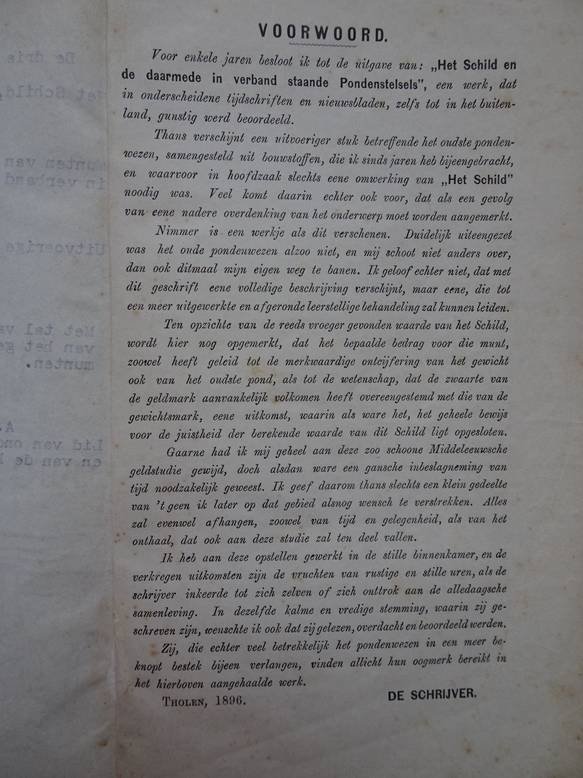 VOORWOORD.
Voor enkele jaren besloot ik tot de uitgave van: „Het Schild en
de daarmede in verband staande Pondenstelsels", een werk, dat
in onderscheidene tijdschriften en nieuwsbladen, zelfs tot in het buiten-
land, gunstig werd beoordeeld.
Thans verschijnt een uitvoeriger stuk betreffende het oudste ponden-
wezen, samengesteld uit bouwstoffen, die ik sinds jaren heb bijeengebracht,
en waarvoor in hoofdzaak slechts eene omwerking van „Het Schild"
noodig was. Veel komt daarin echter ook voor, dat als een gevolg
van eene nadere overdenking van het onderwerp moet worden aangemerkt.
Nimmer is een werkje als dit verschenen. Duidelijk uiteengezet
was het oude pondenwezen alzoo niet, en mij schoot niet anders over,
dan ook ditmaal mijn eigen weg te banen. Ik geloof echter niet, dat met
dit geschrift eene volledige beschrijving verschijnt, maar eene, die tot
een meer uitgewerkte en afgeronde leerstellige behandeling zal kunnen leiden.
Ten opzichte van de reeds vroeger gevonden waarde van het Schild,
wordt hier nog opgemerkt, dat het bepaalde bedrag voor die munt,
zoowel heeft geleid tot de merkwaardige ontcijfering van het gewicht
ook van het oudste pond, als tot de wetenschap, dat de zwaarte van
de geldmark aanvankelijk volkomen heeft overeengestemd met die van de
gewichtsmark, eene uitkomst, waarin als ware het, het geheele bewijs
voor de juistheid der berekende waarde van dit Schild ligt opgesloten.
Gaarne had ik mij geheel aan deze zoo schoone Middeleeuwsche
geldstudie gewijd, doch alsdan ware een gansche inbeslagneming van
tijd noodzakelijk geweest. Ik geef daarom thans slechts een klein gedeelte
van 't geen ik later op dat gebied alsnog wensch te verstrekken. Alles
zal evenwel afhangen, zoowel van tijd en gelegenheid, als van het
onthaal, dat ook aan deze studie zal ten deel vallen.
Ik heb aan deze opstellen gewerkt in de stille binnenkamer, en de
verkregen uitkomsten zijn de vruchten van rustige en stille uren, als de
schrijver inkeerde tot zich zelven of zich onttrok aan de alledaagsche
samenleving. In dezelfde kalme en vredige stemming, waarin zij ge-
schreven zijn, wenschte ik ook dat zij gelezen, overdacht en beoordeeld werden.
Zij, die echter veel betrekkelijk het pondenwezen in een meer be-
knopt bestek bijeen verlangen, vinden allicht hun oogmerk bereikt in
het hierboven aangehaalde werk.
THOLEN, 1896.
DE SCHRIJVER.
De drie
Het Schild,
munten van
in verband
Uitvoerige
Met tal va
van het ge
munten.
Lid van
en van de